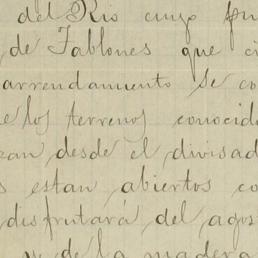 del Rio cuyo
de Tablones que
arrendamiento se co
los terrenos conocid
desde el divisad
estan abiertos co
disfrutará del agos
y de la madera